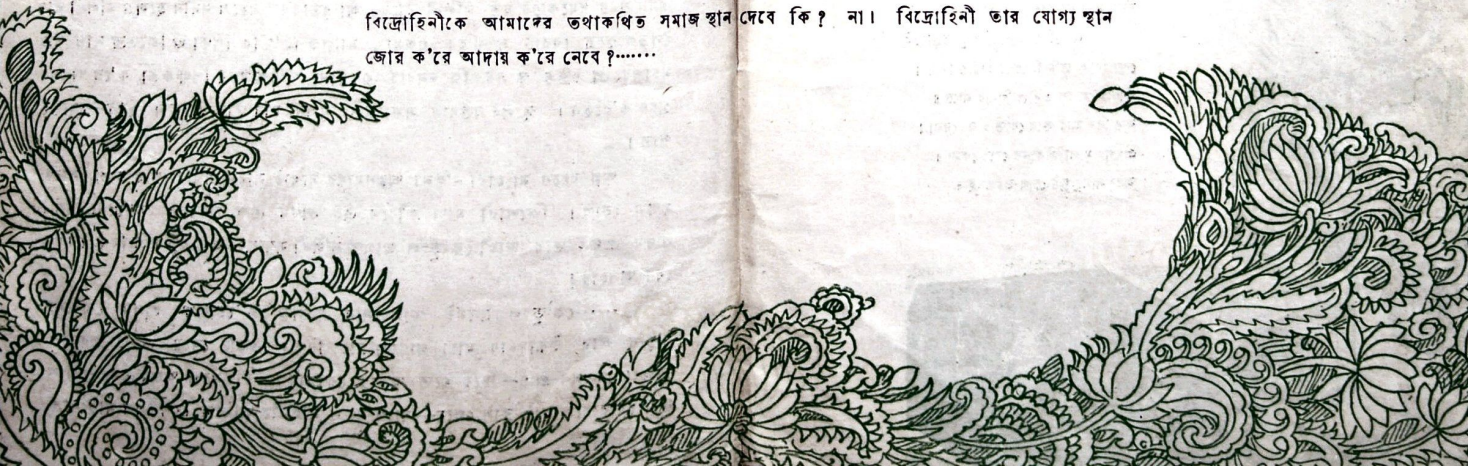 বিদ্রোহিনীকে আমাদের তথাকথিত সমাজ স্থান দেবে কি? না। বিদ্রোহিনী তার যোগ্য স্থান
জোর ক'রে আদায় ক'রে নেবে?.......